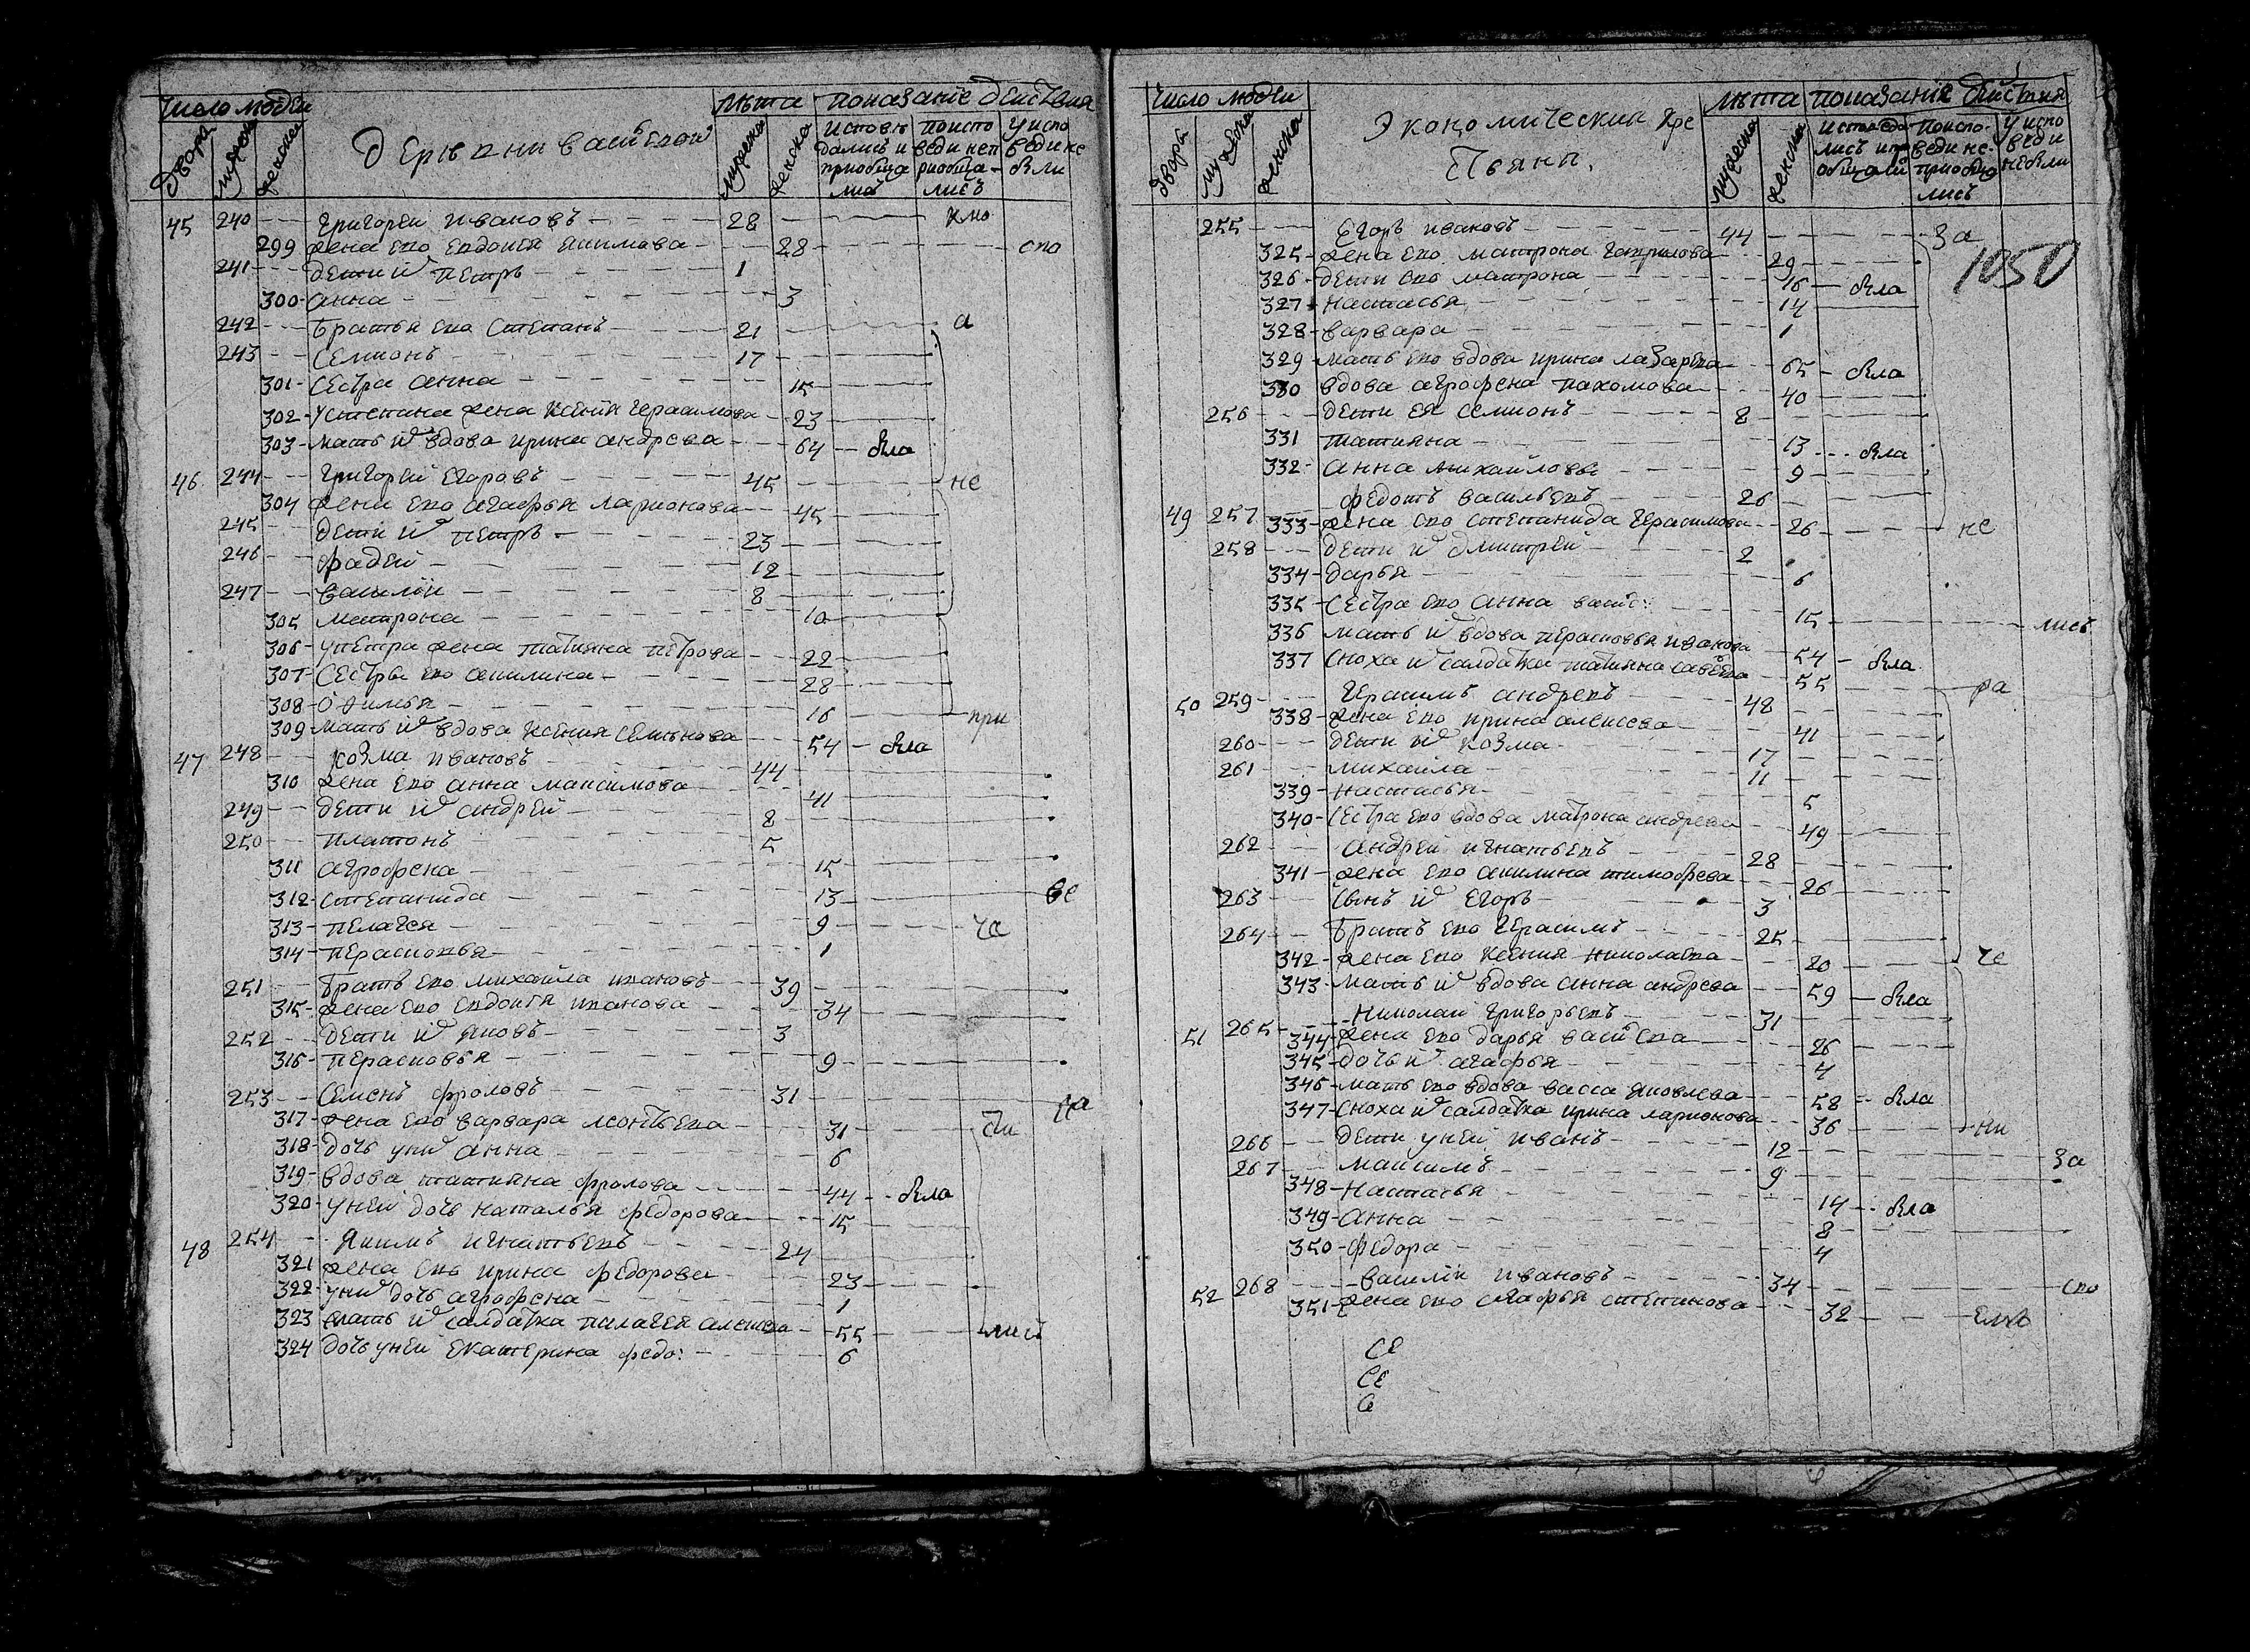 число людеи
лѣта показание действия
двори мужеска женска
деревни василевой
мужеска женска
исповѣдались и приобщались
по исповеди не приобщались
у исповеди не были
45 240 Григореи Ивановъ 28
299 жена ево Евдокія Якимова 28
241 дети их Петръ 1
300 Анна 3
242 братья ево Степанъ 21
243 Семионъ 17
301 сестра Анна 15
302 у Степана жена Ксения Герасимова 23
303 мать их вдова Ирина Андрева 64 была
46 244 Григорей Егоровъ 45 не
304 жена ево Агафья Ларионова 45
245 дети их Петръ 23
246 Фадей 12
247 Василии 8
305 Матрона 10
306 у Петра жена Татияна Петрова 22
307 сестры ево Акилина 28
308 16 при
309 мать их вдова Ксения Семионова 54 была
47 248 Козма Ивановъ 44
310 жена ево Анна Максимова 41
249 дети их Андрей 8
250 Платонъ 5
311 Агрофена 15
312 Степанида 13
313 Пелагея 9
314 Перасковья 1
251 братъ ево Михаила Ивановъ 39
315 жена ево Евдокія Иванова 34
252 дети их Яковъ 3
316 Перасковья 9
253 Семенъ Фроловъ 31
317 жена ево Варвара Леонтьева 31
318 дочь у них Анна 6
319 вдова Татияна Фролова 44 была
320 у ней дочь Наталья Федорова 15
48 254 Якимъ Игнатьевъ 24
321 жена ево Ирина Федорова 23
322 у них дочь Агрофена 1
323 мать их салдатка Пилагея Алексева 55
324 дочь у ней Екатерина Федо: 6
число людеи
лѣта показание действия
двори мужеска женска
Экономически кре
стьяни.
мужеска женска
255 Егоръ Ивановъ 44 за
1050
325 жена ево Матрона Гаврилова 29
326 дети ево Матрона 16 была
327 Настасья 14
328 Варвара 1
329 мать ево вдова Ирина Лазарева 65 была
330 вдова Агрофена Пахомова 40
256 дети ея Семионъ 8
331 Татияна 13 была
332 Анна Михайлова 9
49 257 Федотъ Васильевъ 26
333 жена ево Степанида Герасимова 26 не
258 дети их Дмитрей 2
334 Дарья 6
335 сестра ево Анна Васил: 15
336 мать их вдова Перасковья Иванова 54 была
337 сноха их салдатка Татияна 55
50 259 Герасимъ Андревъ 48
338 жена ево Ирина Алексева 41
260 дети их Козма 17
261 Михаила 11
339 Настасья 5
340 сестра ево вдова Матрона Андрева 49
262 Андрей Игнатьевъ 28
341 жена ево Акилина Тимофева 26
263 сынъ их Егоръ 3
264 братъ ево Герасимъ 25
342 жена ево Ксения Николаева 20
343 мать их вдова Анна Андрева 59 была
51 265 Николай Григорьевъ 31
344 жена ево Дарья Васильева 26
345 дочь их Агафья 4
346 мать ево вдова Васса Яковлева 58 была
347 сноха их салдатка Ирина Ларионова 36 ни
266 дети у ней Иванъ 12
267 Максимъ 9 за
348 Настасья 14 была
349 Анна 8
350 Федора 4
52 268 Василии Ивановъ 34
351 жена ево Агафья Степанова 32
СЕ
СЕ